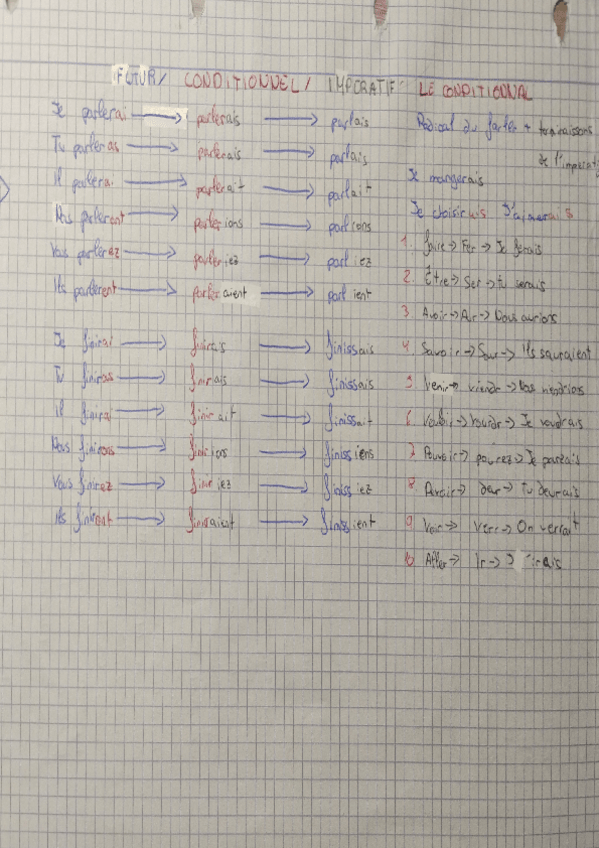 FUTUR / CONDITIONNEL / IMPORATIF LE CONDITIONAL
Je parlerai → parlerais → parlais
Tu parleras → parlerais → parlais
Il parlera → parlerait → parlait
Nous → parlerions → 
Vous parlerez → parleriez → parliez
Ils parleront → parleraient → parlient
Je finirai → finirais → finissais
Tu finiras → finirais → finissais
Il → finirait → finissait
Nous finirons → finirions → finissiens
Vous finirez → finiriez → finissiez
Ils → finraient → finissient
Radical du + terminaisons
de l'
Je mangerais
Je choisirais J'
1. faire → Fer → Je ferais
2. Être → Ser → tu serais
3. Avoir → Aur → Nous aurions
4. Savoir → Saur → Ils sauraient
5. Venir → viendr → 
6. Vouloir → voudr → Je voudrais
7. Pouvoir → → Je
8. → devr → Tu devrais
9. Voir → Verr → On verrait
10. Aller → Ir → J'irais